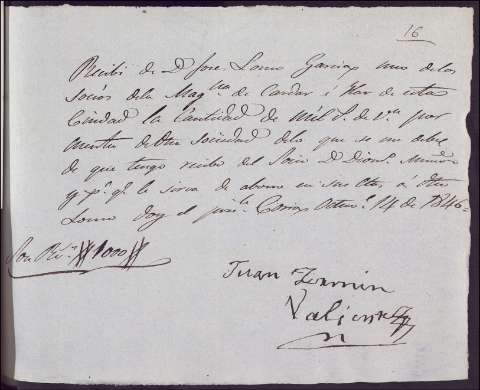 16
Recibi de D. Jose Lomo Garcia uno de los
socios de la Maqna de Cardar i Hilar de esta
Ciudad la Cantidad de mil rs. de von por
cuenta de dha sociedad de lo que se me debe
de que tengo recibo del Socio D. Dions. Muñoz
y pa. qe. le sirva de abono en sus ctas. á dho
Lomo doy el preste. Octue. 14 de 1846=
Son Rs. vn # 1000 #
Juan Fermin
Valiente